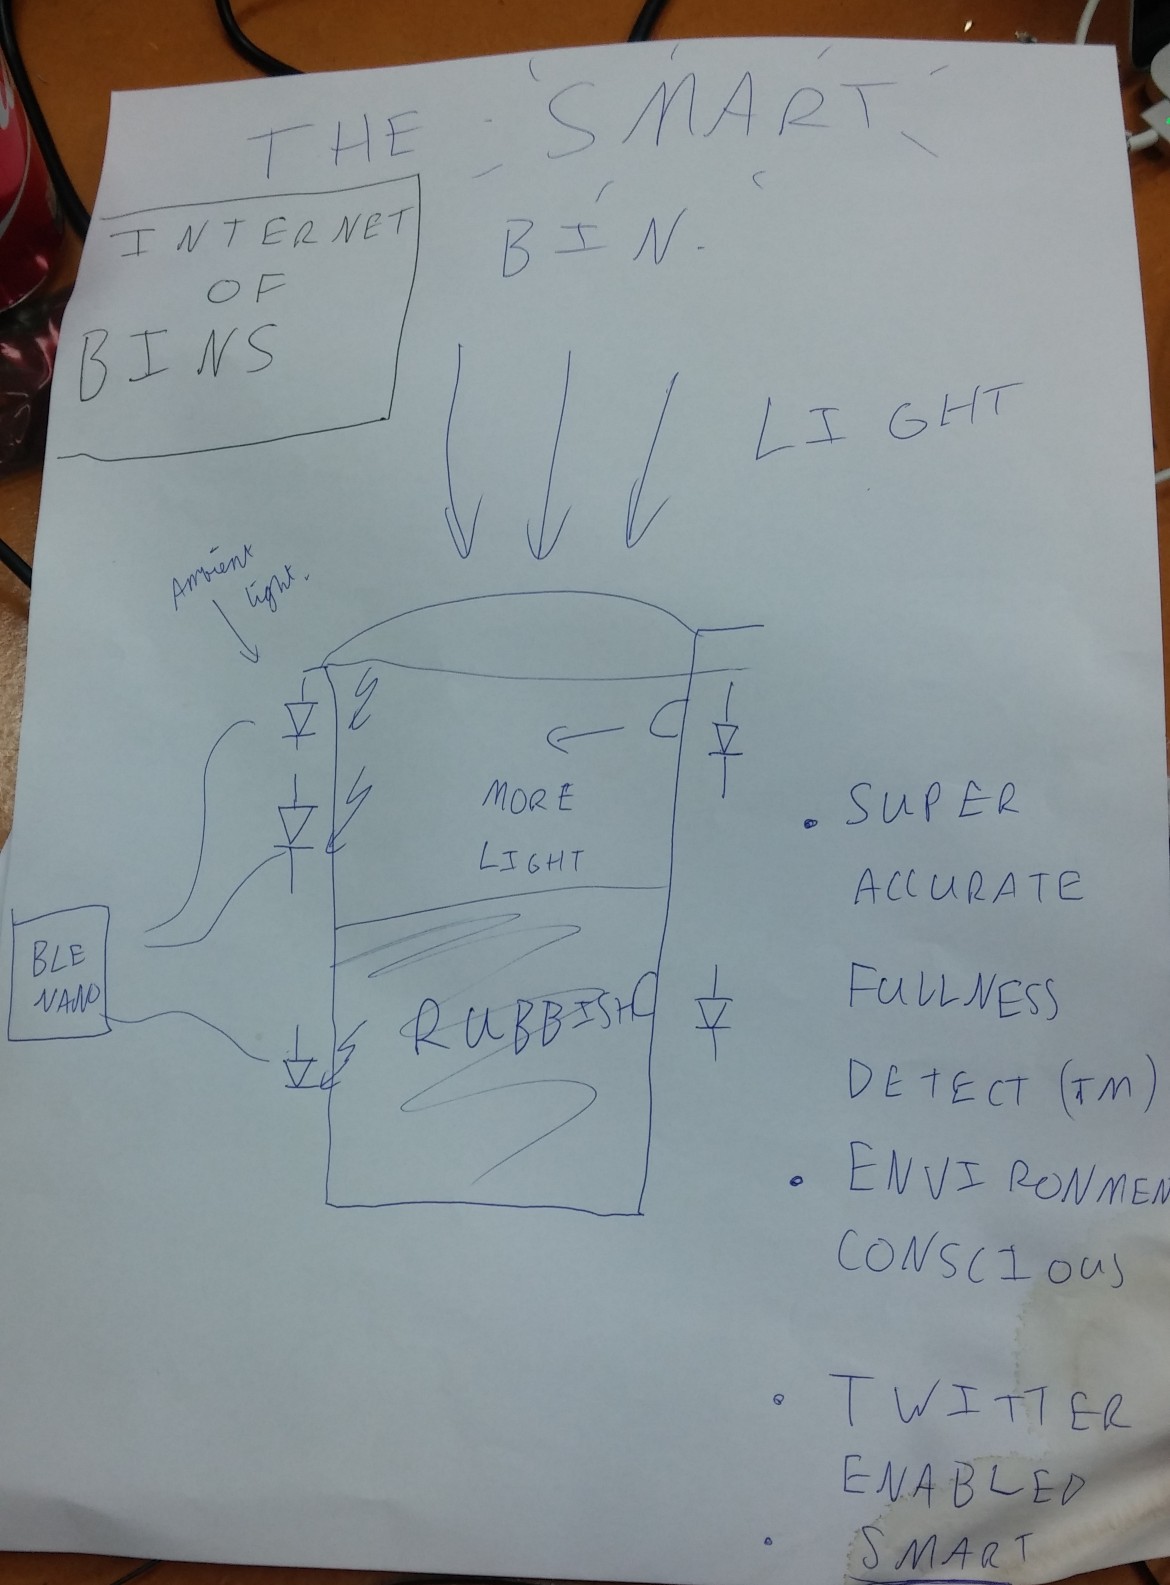 THE SMART
BIN.
INTERNET
OF
BINS
LIGHT
Ambient
light.
MORE
LIGHT
BLE
NANO
RUBBISH
• SUPER
ACCURATE
FULLNESS
DETECT (TM)
• ENVIRONMEN
CONSCIOUS
• TWITTER
ENABLED
• SMART